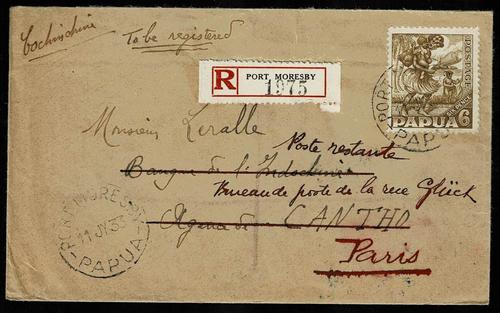 Cochinchine
To be registered
R PORT MORESBY
1975
POSTAGE
PAPUA 6
PORT
PAPUA
Monsieur Leralle
Poste restante
Banque de l'Indochine
Bureau de poste de la rue Glück
Agence de CANTHO
Paris
PORT MORESBY
11 JY 33
PAPUA